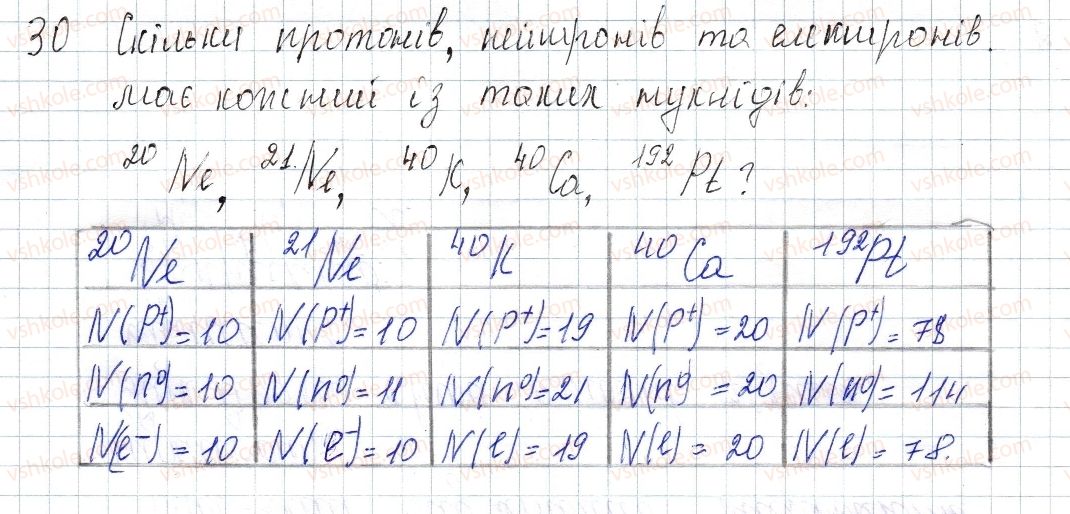 30 Скільки протонів, нейтронів та електронів.
має кожний із таких нуклідів:
²⁰Ne, ²¹Ne, ⁴⁰K, ⁴⁰Ca, ¹⁹²Pt?
²⁰Ne ²¹Ne ⁴⁰K ⁴⁰Ca ¹⁹²Pt
N(p⁺)=10 N(p⁺)=10 N(p⁺)=19 N(p⁺)=20 N(p⁺)=78
N(n⁰)=10 N(n⁰)=11 N(n⁰)=21 N(n⁰)=20 N(n⁰)=114
N(e⁻)=10 N(e⁻)=10 N(e)=19 N(e)=20 N(e)=78.